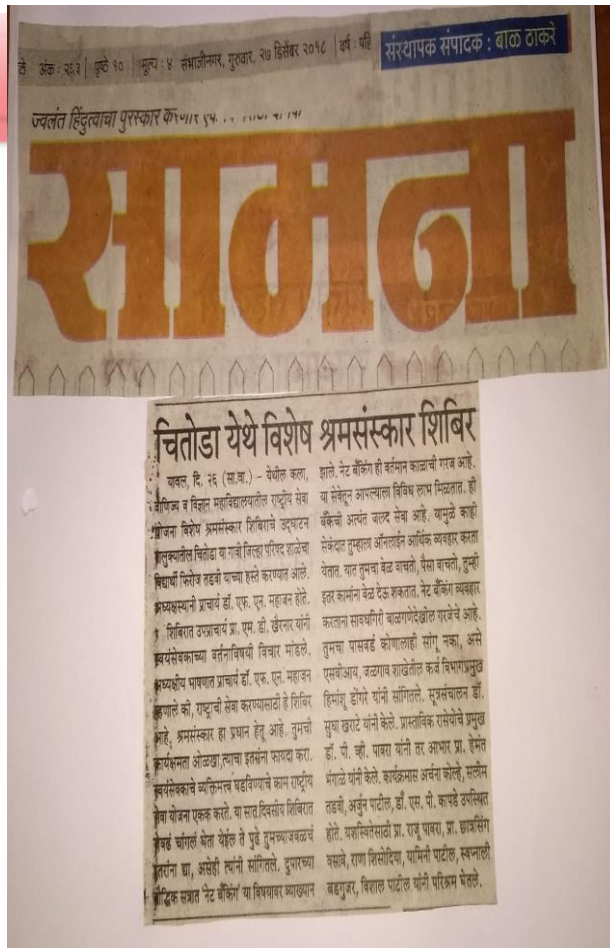 अंक : २६३ | पृष्ठे १० | मूल्य : ४ संभाजीनगर, गुरुवार, २७ डिसेंबर २०१८ | वर्ष :
संस्थापक संपादक : बाळ ठाकरे
ज्वलंत हिंदुत्वाचा पुरस्कार
सामना
चितोडा येथे विशेष श्रमसंस्कार शिबिर
यावल, दि. २६ (सा.वा.) - येथील कला,
वाणिज्य व विज्ञान महाविद्यालयातील राष्ट्रीय सेवा
योजना विशेष श्रमसंस्कार शिबिराचे उद्घाटन
तालुक्यातील चितोडा या गावी जिल्हा परिषद शाळेचा
विद्यार्थी फिरोज तडवी याच्या हस्ते करण्यात आले.
अध्यक्षस्थानी प्राचार्य डॉ. एफ. एन. महाजन होते.
शिबिरात उपप्राचार्य प्रा. एम. डी. खैरनार यांनी
स्वयंसेवकाच्या वर्तनाविषयी विचार मांडले.
अध्यक्षीय भाषणात प्राचार्य डॉ. एफ. एन. महाजन
म्हणाले की, राष्ट्राची सेवा करण्यासाठी हे शिबिर
आहे, श्रमसंस्कार हा प्रधान हेतू आहे. तुमची
कार्यक्षमता ओळखा,त्याचा इतरांना फायदा करा.
स्वयंसेवकाचे व्यक्तिमत्त्व घडविण्याचे काम राष्ट्रीय
सेवा योजना एकक करते. या सात दिवसीय शिबिरात
जेवढं चांगलं घेता येईल ते पुढे तुमच्याजवळचं
इतरांना द्या, असेही त्यांनी सांगितले. दुपारच्या
बौद्धिक सत्रात 'नेट बँकिंग' या विषयावर व्याख्यान
झाले. नेट बँकिंग ही वर्तमान काळाची गरज आहे.
या सेवेतून आपल्याला विविध लाभ मिळतात. ही
बँकेची अत्यंत जलद सेवा आहे. यामुळे काही
सेकंदात तुम्हाला ऑनलाईन आर्थिक व्यवहार करता
येतात. यात तुमचा वेळ वाचतो, पैसा वाचतो, तुम्ही
इतर कामांना वेळ देऊ शकतात. नेट बँकिंग व्यवहार
करताना सावधगिरी बाळगणेदेखील गरजेचे आहे.
तुमचा पासवर्ड कोणालाही सांगू नका, असे
एसबीआय, जळगाव शाखेतील कर्ज विभागप्रमुख
हिमांशू डोंगरे यांनी सांगितले. सूत्रसंचालन डॉ.
सुधा खराटे यांनी केले. प्रास्ताविक रासेयोचे प्रमुख
डॉ. पी. व्ही. पावरा यांनी तर आभार प्रा. हेमंत
भंगाळे यांनी केले. कार्यक्रमास अर्चना कोल्हे, सलीम
तडवी, अर्जुन पाटील, डॉ. एस. पी. कापडे उपस्थित
होते. यशस्वितेसाठी प्रा. राजू पावरा, प्रा. छात्रसिंग
वसावे, राणा शिसोदिया, यामिनी पाटील, स्वप्नाली
बडगुजर, विशाल पाटील यांनी परिश्रम घेतले.